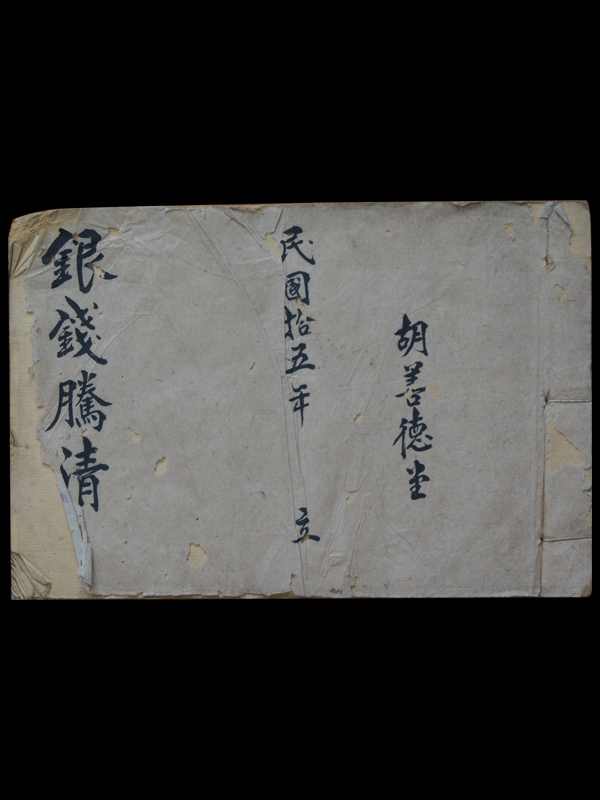 胡善德堂
民國拾五年 立
銀錢騰清